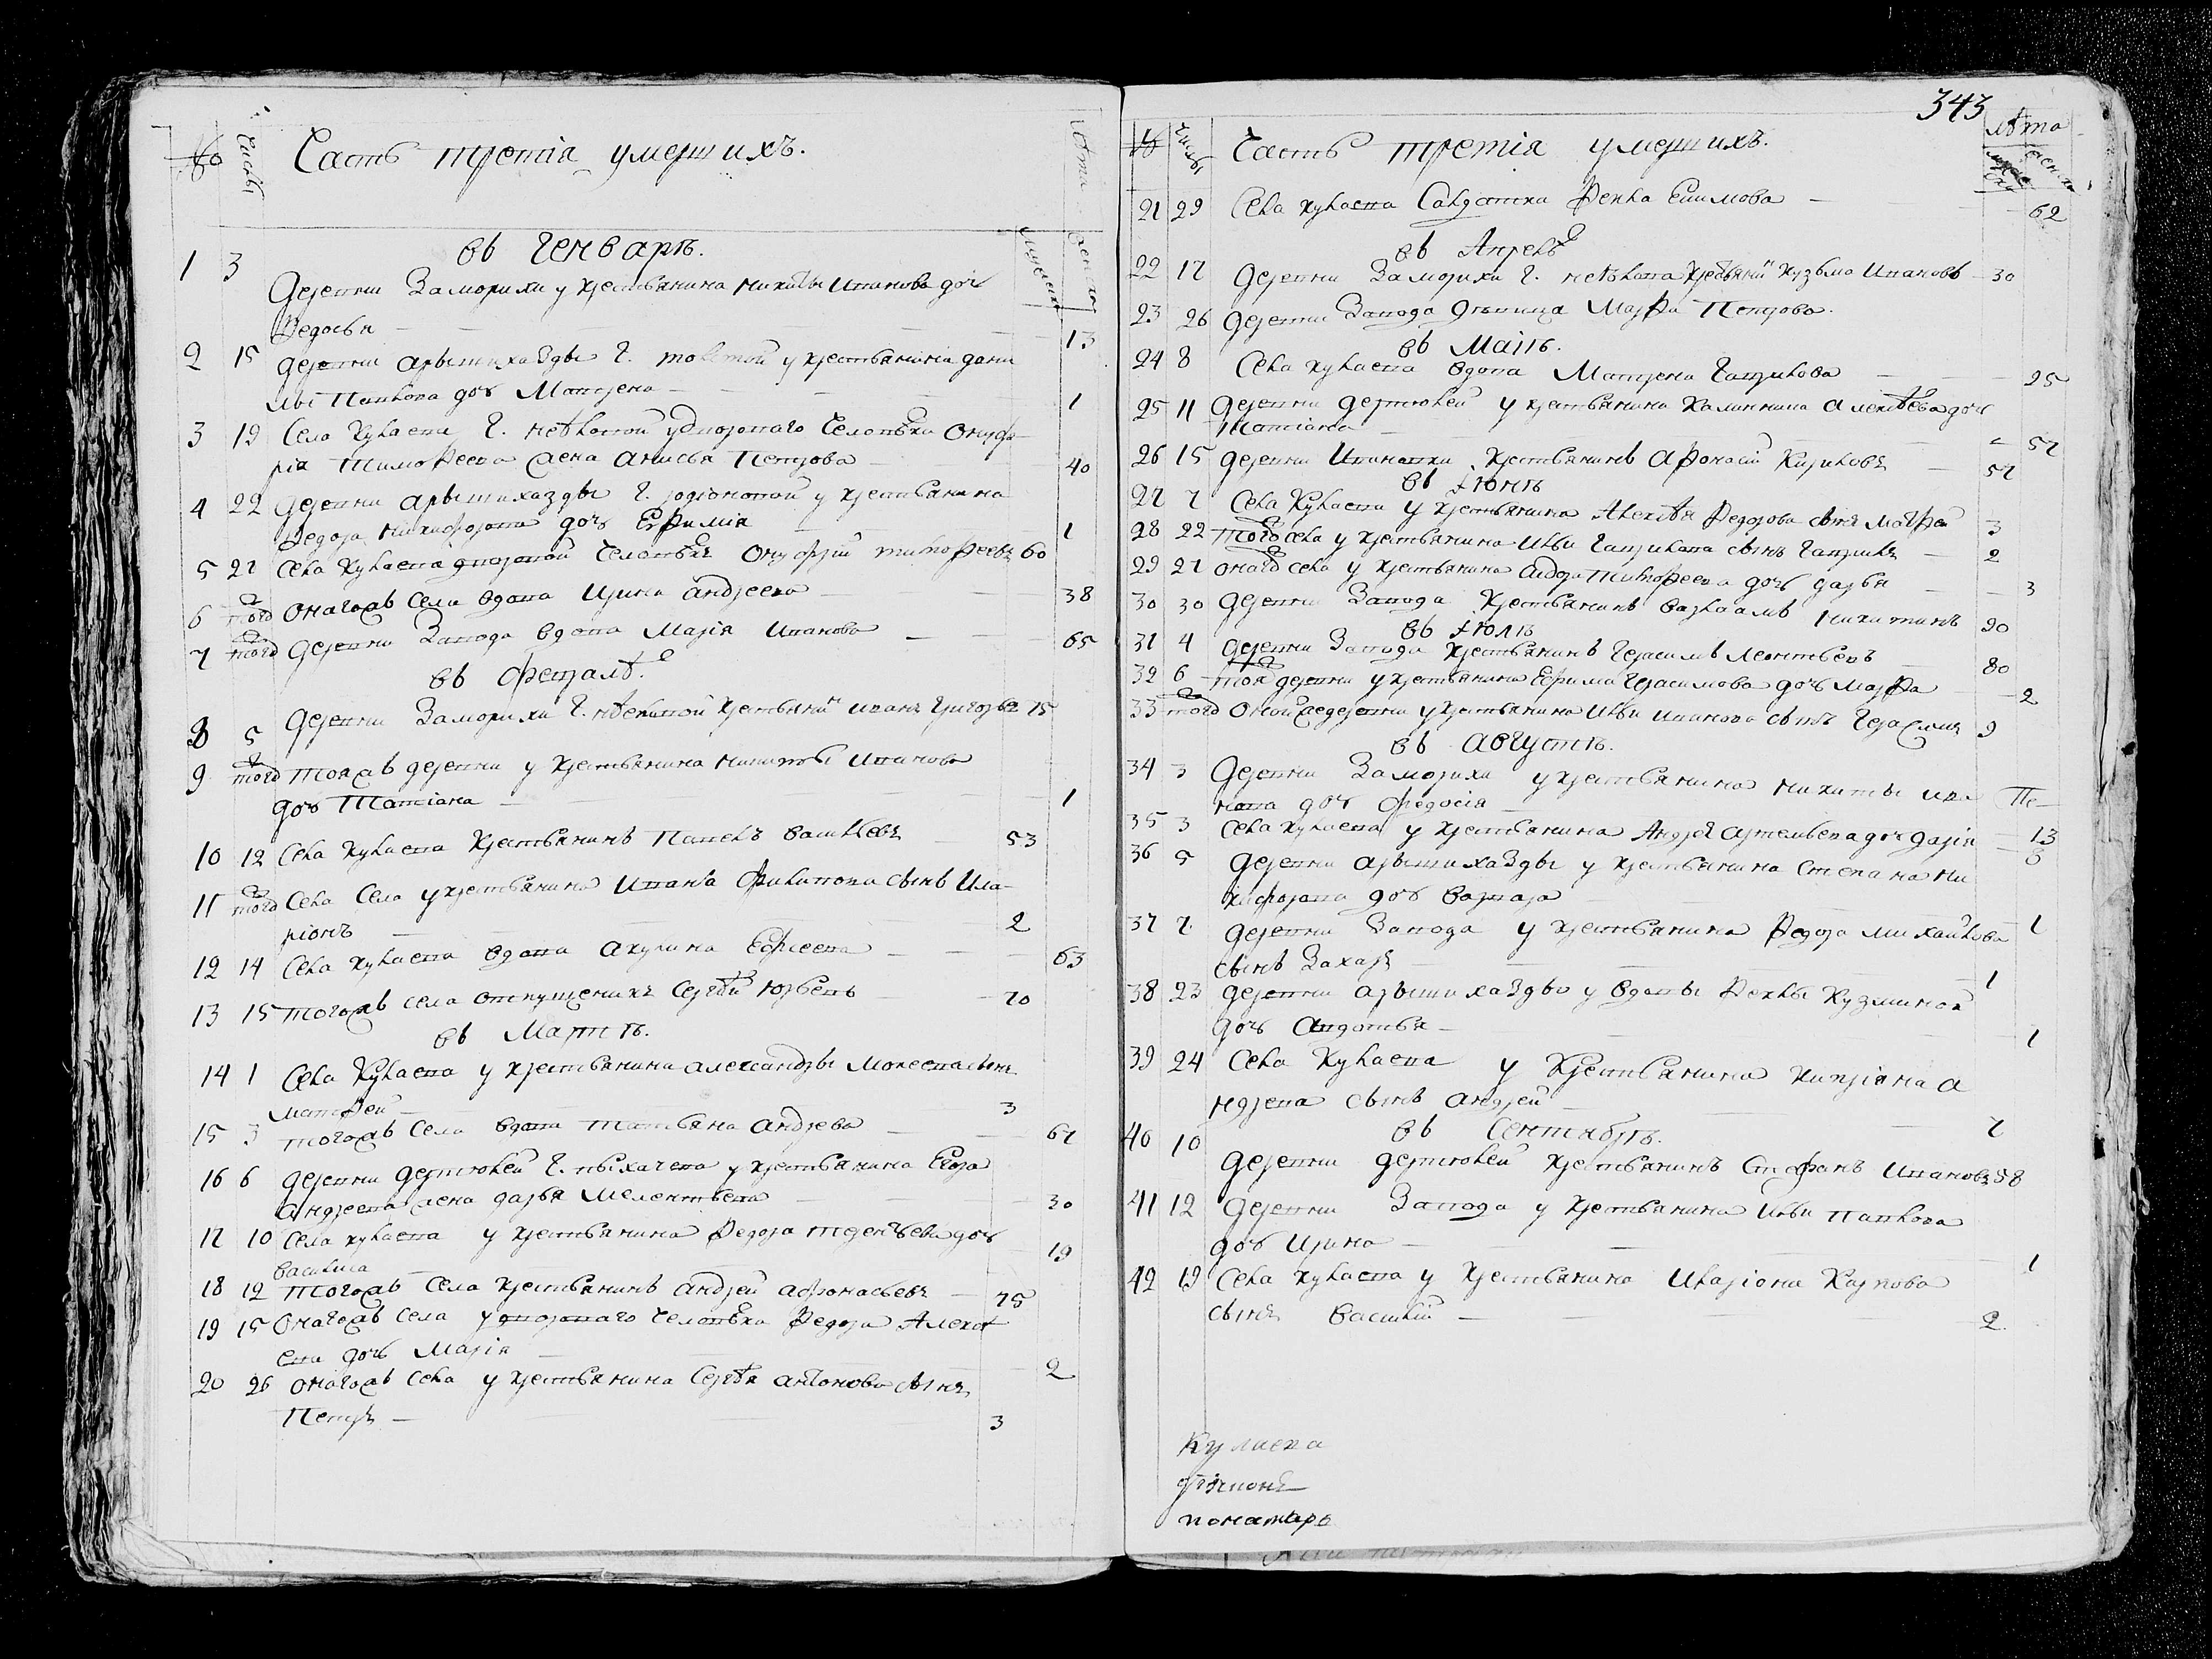 № числы Часть третiя умершихъ. лѣта
въ Генварѣ. мужеск женск
1 3 Деревни Заморихи у крестьянина Никиты Иванова дочь
Ѳедосья — 13
2 15 деревни арышихазды Г. толстой у крестьянина дани
лы Павлова дочь Матрена — 1
3 19 Села Кулаева Г. нелѣвой у дворового человѣка Онуф
рiя Тимоѳеева жена Анисья Петрова 40
4 22 Деревни арышихазды Г. родiоновой у крестьянина
Ѳедора Никифорова дочь Евѳимiя 1
5 27 Села Кулаева дворовой человѣкъ Онуфрiй тимоѳеевъ 60
6 того онагожъ села вдова Ирина андреева 38
7 того деревни Завода вдова Марiя Иванова — 65
въ Февралѣ.
8 5 Деревни Заморихи Г. крестьянинъ иванъ Григорьевъ 75
9 того тояжъ деревни у крестьянина никиты Иванова
дочь Татiана — 1
10 12 Села Кулаева крестьянинъ Павелъ Васильевъ 53
11 того Села Села у крестьянина Ивана Филипова сынъ Ила
рiонъ — 2
12 14 Села кулаева вдова акулина Ефвеева — 63
13 15 тогожъ села отпущеникъ Сергѣй Юрьевъ 70
въ Мартѣ.
14 1 Села Кулаева у крестьянина александры Мокеева сынъ
матѳей — 3
15 3 тогожъ села вдова татьяна андреева 67
16 6 деревни дертюлей Г. пыхачева у крестьянина Егора
андреева жена дарья Мелентьева 30
17 10 Села кулаева у крестьянина Ѳедора дочь
василиса 19
18 12 тогожъ села крестьянинъ андрей афонасьевъ — 75
19 15 Онагожъ села у двороваго человѣка Ѳедора Алексѣ
ева дочь Марiя 2
20 26 онагожъ села у крестьянина Сергѣя антонова сынъ
Петръ — 3
343
№ числы Часть третiя умершихъ. лѣта
мужеск женск
21 29 Села кулаева Салдатка Ѳекла Ефимова — 62
въ Апрелѣ
22 17 Деревни Заморихи Г. нелѣлова крестьянинъ Кузьма Ивановъ 30
23 26 деревни Завода дѣвица Марѳа Петрова.
въ Маiѣ.
24 8 Села кулаева вдова Матрена Гаврилова 25
25 11 деревни дертюлей у крестьянина Калиннина алексѣева дочь
Татiана — 57
26 15 деревни Ивановки крестьянинъ Афонасiй Кириловъ 57
въ Iюнѣ
27 7 Села Кулаева у крестьянина Алексѣя Ѳедорова сынъ Матѳей 3
28 22 того села у крестьянина Ильи Гаврилова сынъ Гаврилъ — 2
29 27 онаго села у крестьянина Сидора Тимоѳеева дочь дарья 3
30 30 Деревни Завода крестьянинъ Варлаамъ Никитинъ 90
въ Iюлѣ
31 4 деревни Завода крестьянинъ Герасимъ Леонтьевъ 80
32 6 тоя деревни у крестьянина Ефима Герасимова дочь Марѳа 2
33 того оной же деревни у крестьянина Ильи Иванова сынъ Герасимъ 9
въ августѣ.
34 3 Деревни Заморихи у крестьянина Никиты ива
нова дочь Федосiя 13
35 3 Села кулаева у крестьянина Андрея артемьева дочь дарiя 3
36 5 деревни арышихазды у крестьянина Степана ни
кифорова дочь варвара 1
37 7 деревни Завода у крестьянина Ѳедора михайлова
сынъ Захаръ 1
38 23 деревни арышихазды у вдовы Ѳеклы Кузминой
дочь авдотья — 1
39 24 Села Кулаева у крестьянина Кипрiяна а
ндреева сынъ андрей 7
въ Сентябрѣ.
40 10 деревни дертюлей крестьянинъ Стефанъ Ивановъ 58
41 12 деревни Завода у крестьянина Ильи Павлова
дочь Ирина — 1
42 19 Села кулаева у крестьянина Иларiона Карпова
сынъ Василiй — 2
Кулаева
дiяконъ
пономарь